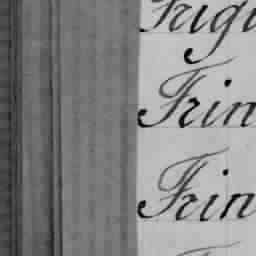 Frigi
Frin
Frin